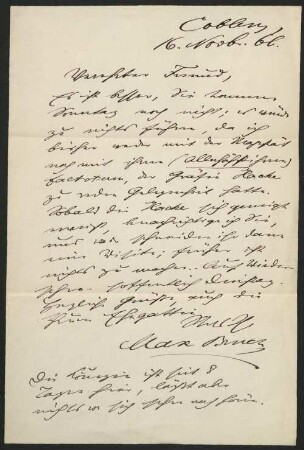 Coblenz,
16. Novb. 66.
Verehrter Freund,
Es ist besser, Sie kommen
Sonntag noch nicht; es würde
zu nichts führen, da ich
bisher weder mit der Majestät
noch mit ihrem (Allerhöchsten)
Factotum, der Gräfin Hacke
zu reden Gelegenheit hatte.
Sobald die Hacke sich geneigt
macht, benachrichtige ich Sie,
und wir schneiden ihr dann
eine Visite; früher ist
nichts zu machen. Auf Wieder
sehen hoffentlich Dienstag.
Herzliche Grüße, auch an
Ihre Gattin
Max Bruch
Die Königin ist seit 8
Tagen hier, läßt aber
nichts von sich sehen noch hören.